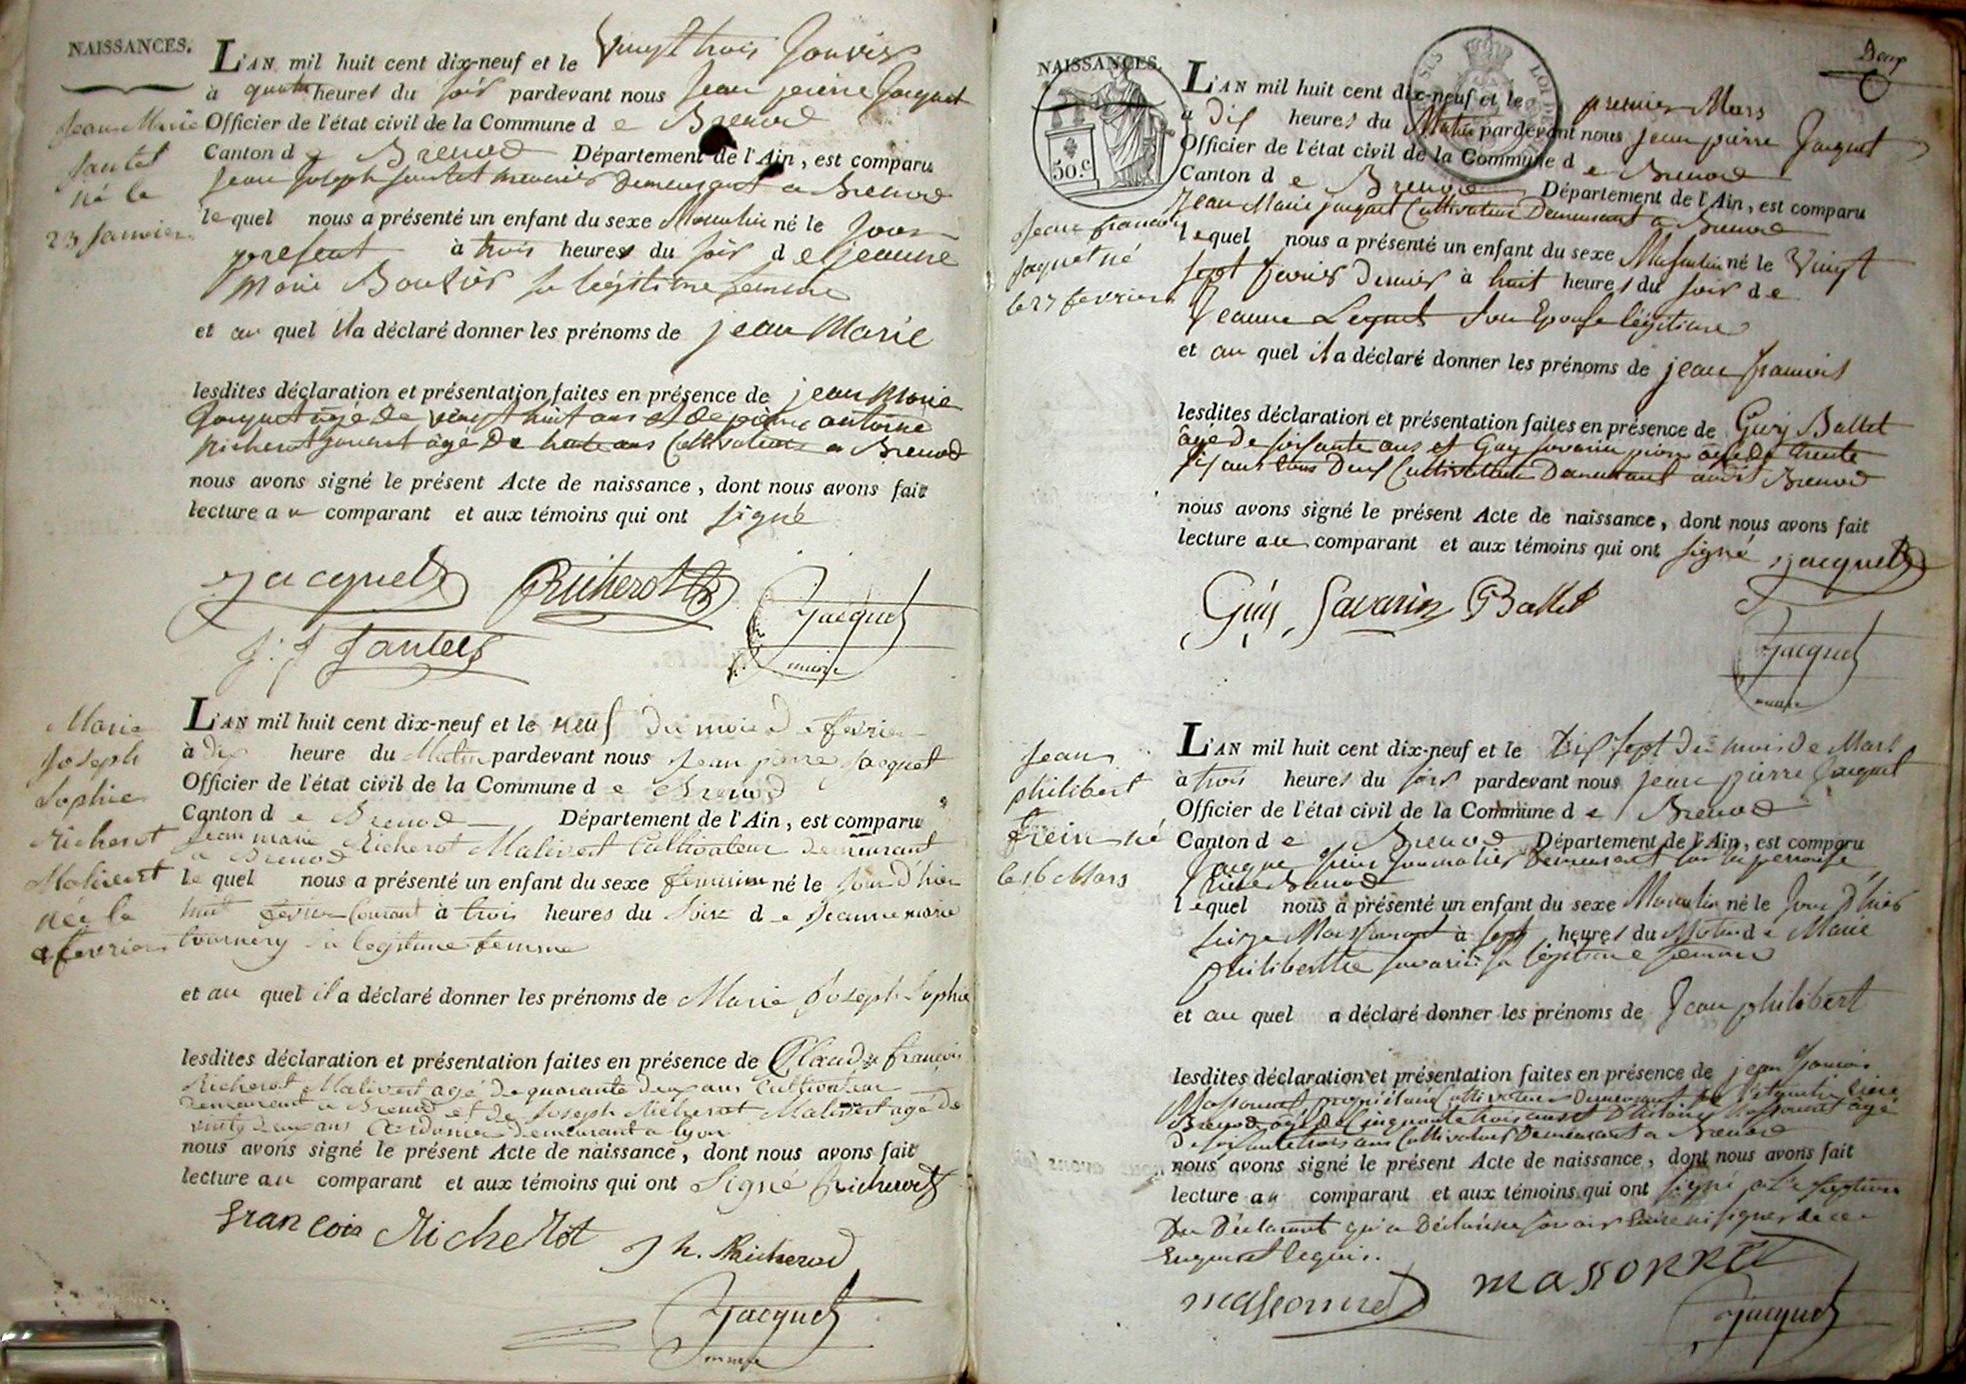 NAISSANCES.
L'AN mil huit cent dix-neuf et le Vingt trois Janvier
à quatre heures du soir pardevant nous Jean pierre Jacquet
Officier de l'état civil de la Commune de Brenod
Canton de Brenod Département de l'Ain, est comparu
Jean Joseph demeurant a Brenod
lequel nous a présenté un enfant du sexe Masculin né le Jour
present à trois heures du soir de jeanne
Marie sa légitime femme
et au quel il a déclaré donner les prénoms de jean Marie
lesdites déclaration et présentation faites en présence de jean Marie
Jacquet agé de vingt huit ans et de pierre antoine
Richerot agé de ans Cultivateurs a Brenod
nous avons signé le présent Acte de naissance, dont nous avons fait
lecture au comparant et aux témoins qui ont signé
Jacquet Richerot Jacquet
maire
Jean Marie
né le
23 Janvier
Marie
Joseph
Sophie
Richerot
Malivert
née le
fevrier
L'AN mil huit cent dix-neuf et le neuf du mois de fevrier
à dix heure du Matin pardevant nous Jean pierre Jacquet
Officier de l'état civil de la Commune de Brenod
Canton de Brenod Département de l'Ain, est comparu
Jean marie Richerot Malivert Cultivateur demeurant
a Brenod
lequel nous a présenté un enfant du sexe feminin né le Jour d'hier
huit fevrier Courant à trois heures du Soir de Jeanne marie
tournery sa legitime femme
et au quel il a déclaré donner les prénoms de Marie Joseph Sophie
lesdites déclaration et présentation faites en présence de Claude françois
Richerot Malivert agé de quarante deux ans Cultivateur
demeurant a Brenod et de Joseph Richerot Malivert agé de
vingt deux ans demeurant a lyon
nous avons signé le présent Acte de naissance, dont nous avons fait
lecture au comparant et aux témoins qui ont Signé Richerot
francois Richerot Jh. Richerod
Jacquet
Deux
NAISSANCES.
50 c
L'AN mil huit cent dix-neuf et le premier Mars
à dix heures du Matin pardevant nous jean pierre Jacquet
Officier de l'état civil de la Commune de Brenod
Canton de Brenod Département de l'Ain, est comparu
Jean Marie jacquet Cultivateur Demeurant a Brenod
lequel nous a présenté un enfant du sexe Masculin né le Vingt
sept fevrier Dernier à huit heures du soir de
Jeanne son Epouse légitime
et au quel il a déclaré donner les prénoms de jean francois
lesdites déclaration et présentation faites en présence de Guy Ballet
âgé de soixante ans et Guy savarin agé de trente
six ans tous Deux Cultivateurs Demeurant audit Brenod
nous avons signé le présent Acte de naissance, dont nous avons fait
lecture au comparant et aux témoins qui ont signé jacquet
Guy Savarin Ballet
Jacquet
maire
Jean francois
jaquet né
le 27 fevrier
Jean
philibert
né
le 16 Mars
L'AN mil huit cent dix-neuf et le Dix sept du mois de Mars
à trois heures du soir pardevant nous jean pierre Jacquet
Officier de l'état civil de la Commune de Brenod
Canton de Brenod Département de l'Ain, est comparu
Journalier Demeurant sur la
Brenod
lequel nous a présenté un enfant du sexe Masculin né le Jour d'hier
seize Mars Courant à sept heures du Matin de Marie
philiberthe savarin sa légitime femme
et au quel a déclaré donner les prénoms de Jean philibert
lesdites déclaration et présentation faites en présence de jean
Massonnet propriétaire Cultivateur Demeurant
Brenod agé de Cinquante trois ans et D'Antoine Massonnet agé
de soixante trois ans Cultivateur Demeurant a Brenod
nous avons signé le présent Acte de naissance, dont nous avons fait
lecture au comparant et aux témoins qui ont signé
Du Déclarant qui a Déclaré ne savoir lire ni signer de ce
Enquis et Requis.
massonnet massonnet
Jacquet